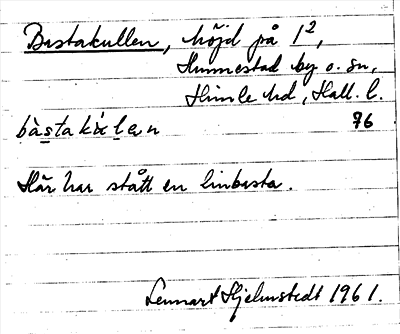 Bastakullen, höjd på 1²,
Hunnestad by o. sn,
Himle hd, Hall. l.
bàstakúlen 76
Här har stått en linbasta.
Lennart Hjelmstedt 1961.